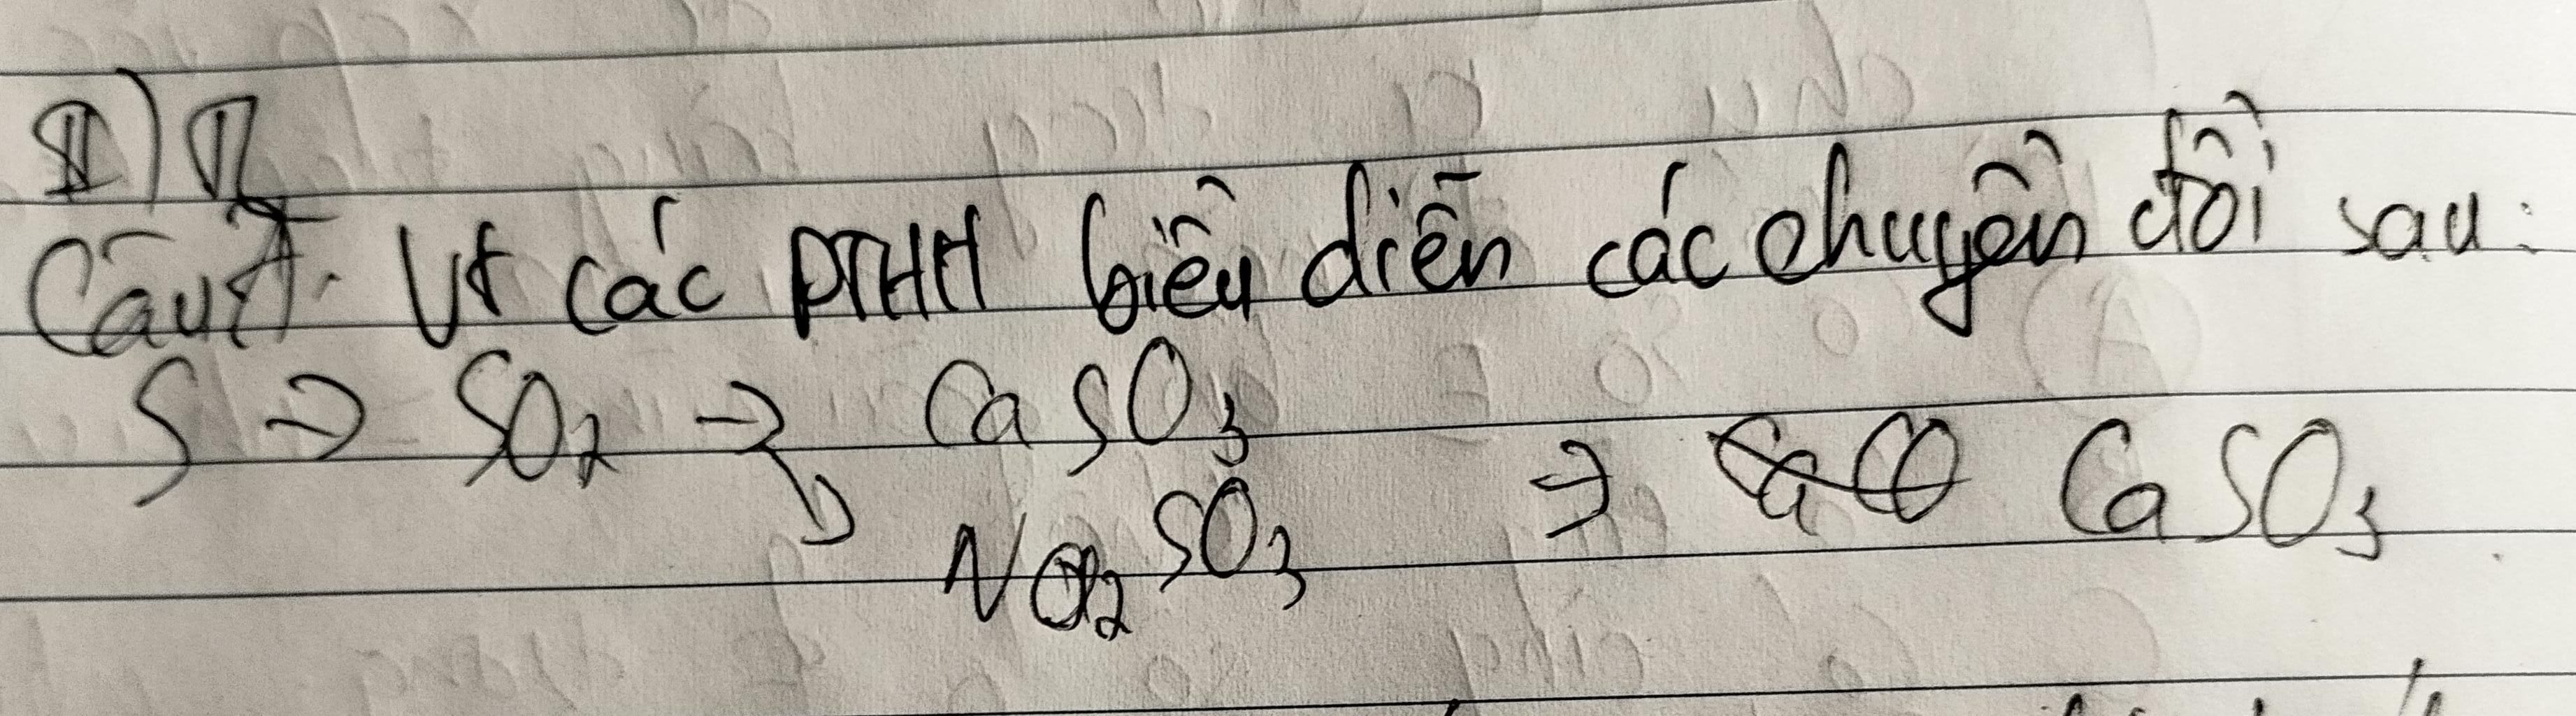 II)
Câu 1. Vt các PTHH biểu diễn các chuyển đổi sau:
S → SO₂ → CaSO₃
↘ Na₂SO₃ → CaSO₃